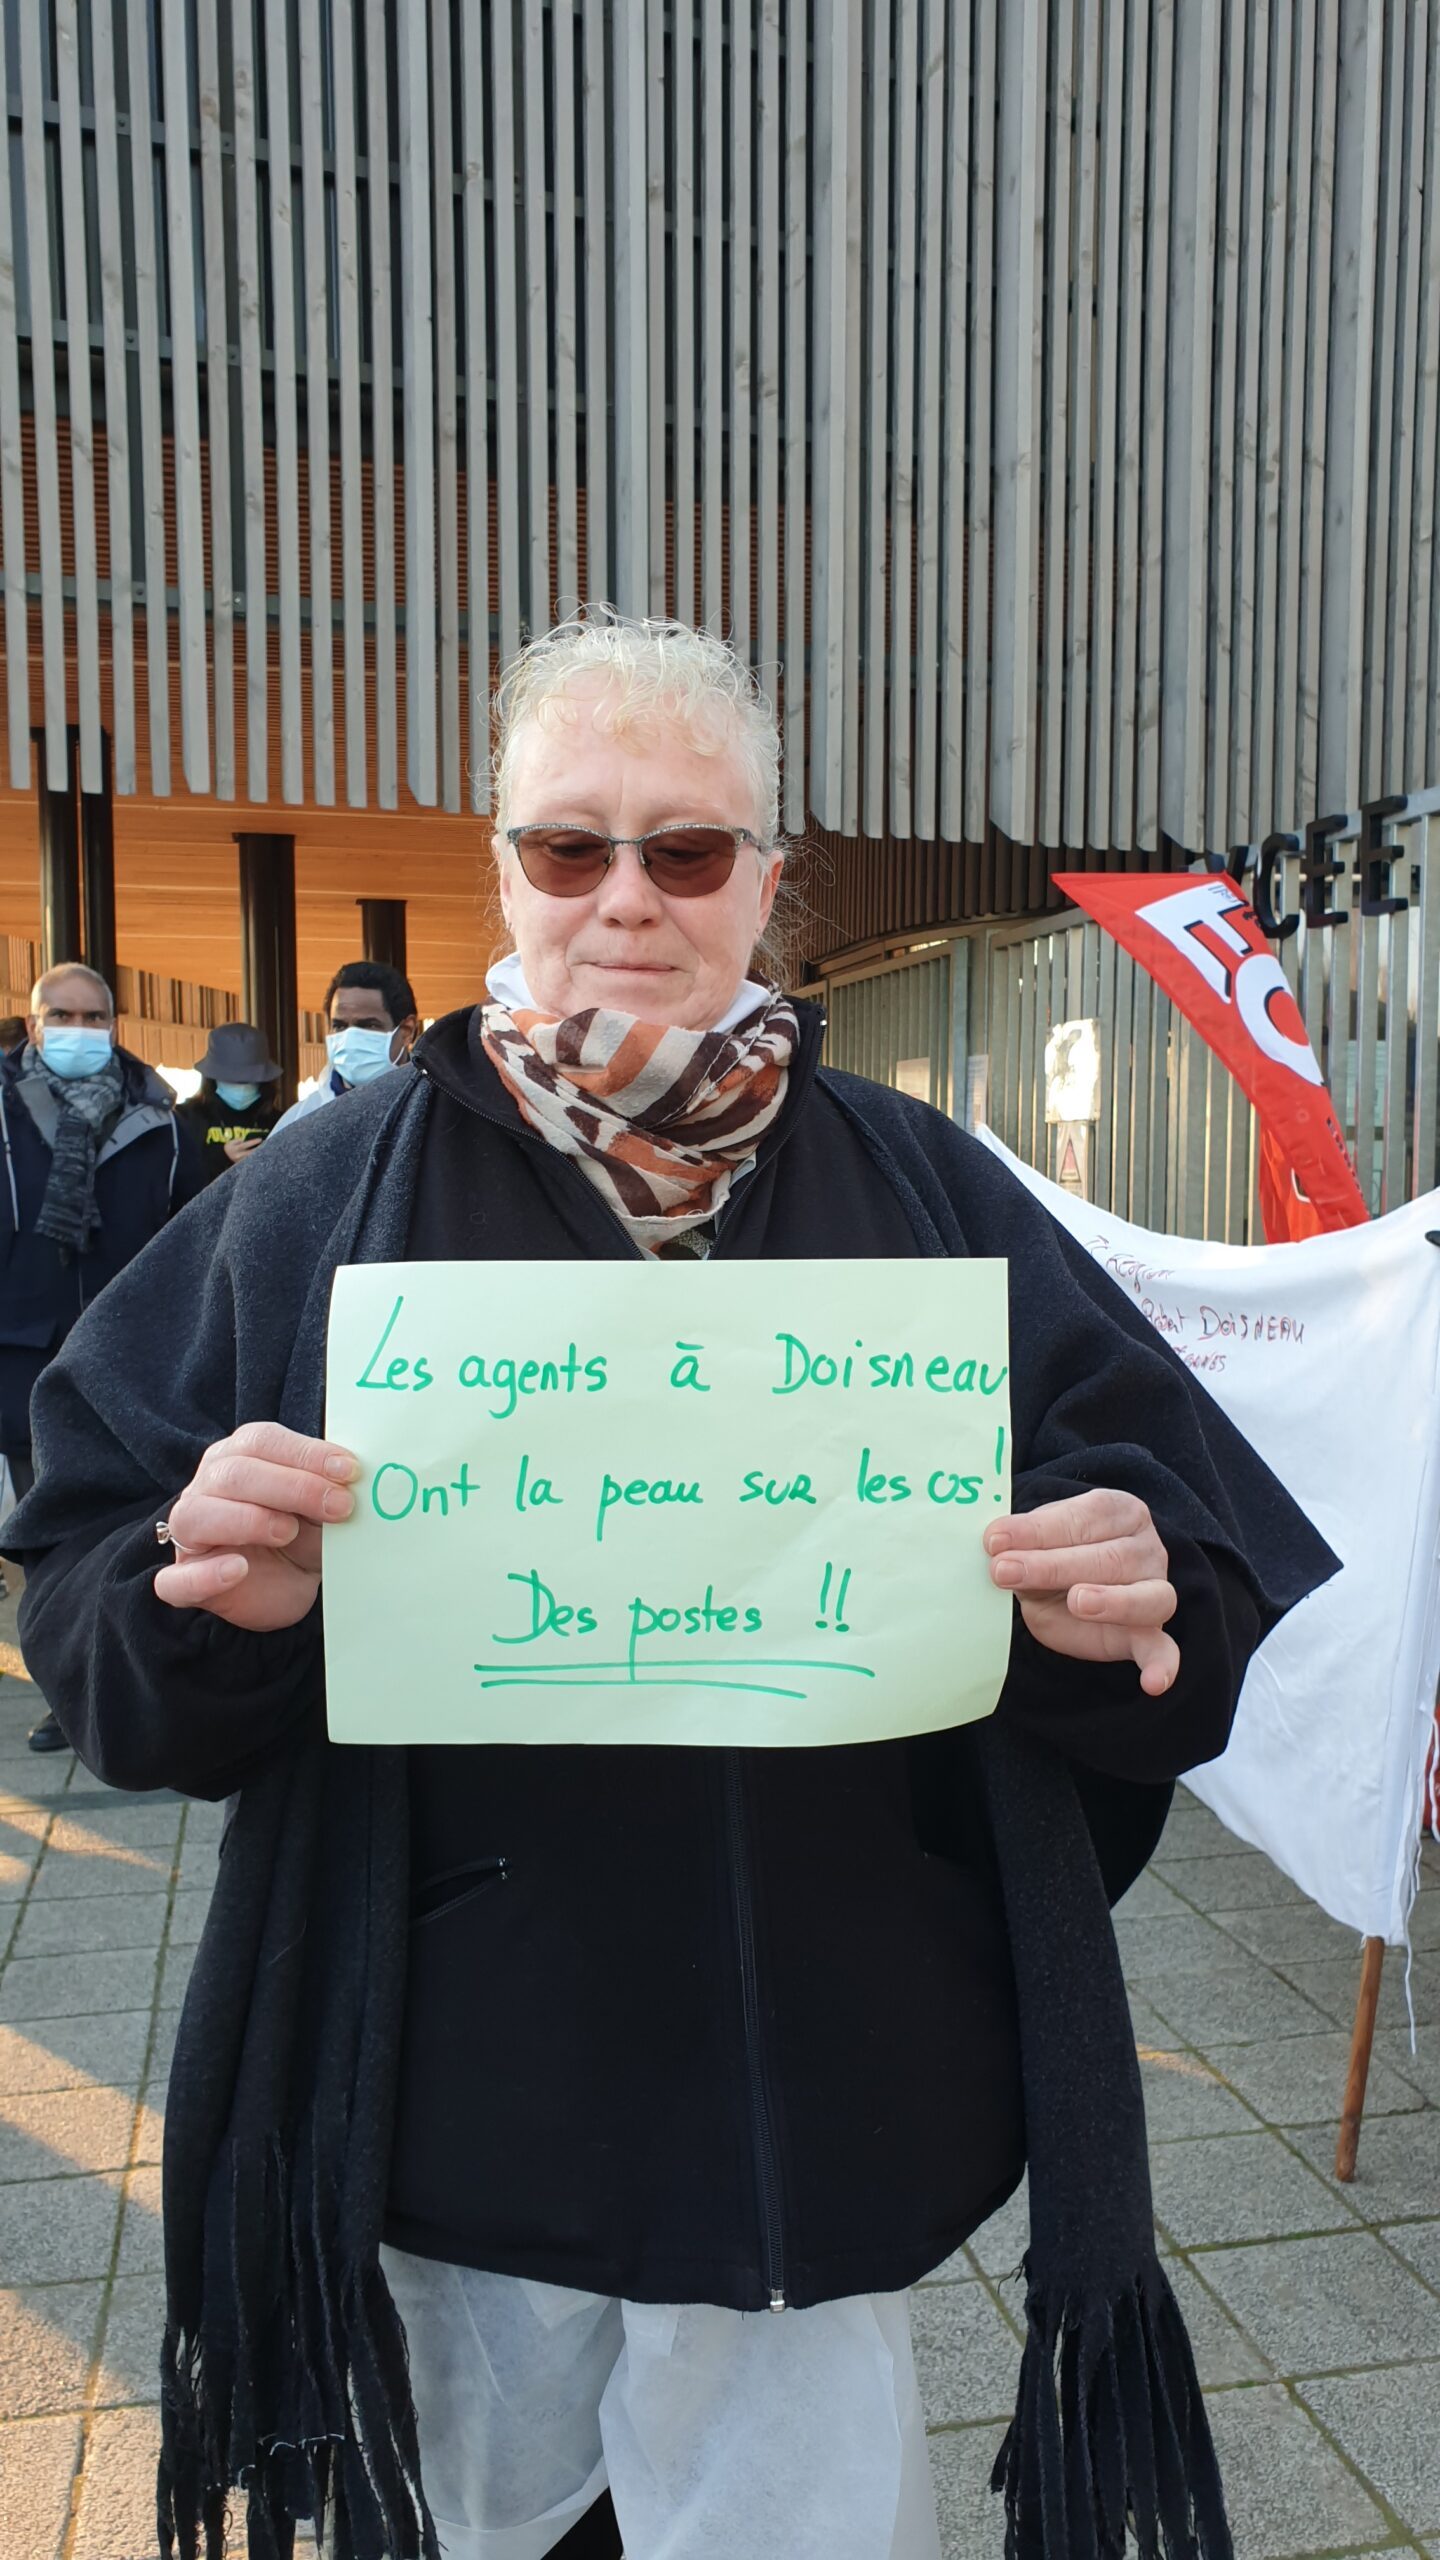 Les agents à Doisneau
Ont la peau sur les os!
Des postes !!
YCEE
FO
Robert DOISNEAU